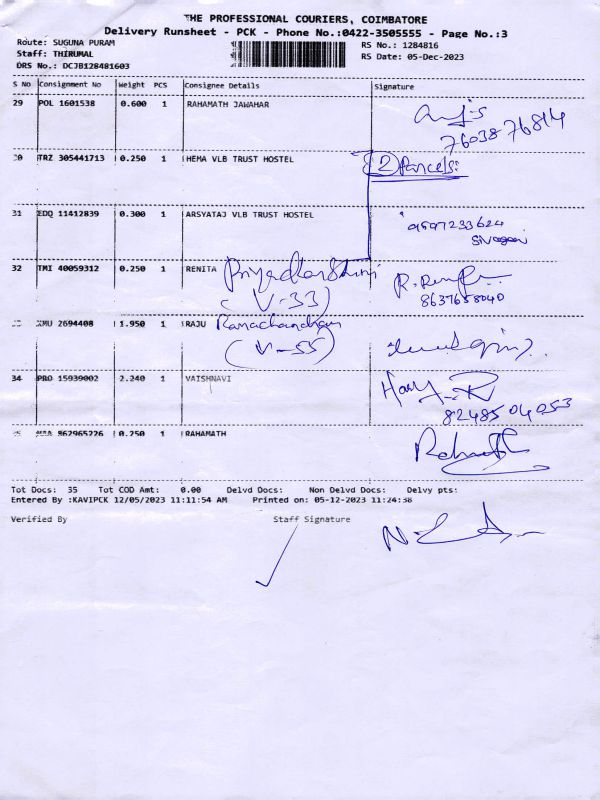 THE PROFESSIONAL COURIERS, COIMBATORE
Delivery Runsheet - PCK - Phone No.:0422-3505555 - Page No.:3
Route: SUGUNA PURAM
RS No.: 1284816
Staff: THIRUMAL
RS Date: 05-Dec-2023
DRS No.: DCJB128481603
S No Consignment No Weight PCS Consignee Details Signature
29 POL 1601538 0.600 1 RAHAMATH JAWAHAR
76038 76814
30 TRZ 305441713 0.250 1 HEMA VLB TRUST HOSTEL 2 Parcels:
31 EDQ 11412839 0.300 1 ARSYATAJ VLB TRUST HOSTEL
9597233624
32 TMI 40059312 0.250 1 RENITA Priyadharshini
(V-33) 8637658040
KMU 2694408 1.950 1 RAJU Ramachandran
(V-55)
34 PRO 15939002 2.240 1 VAISHNAVI
82485 04053
962965226 0.250 1 RAHAMATH
Tot Docs: 35 Tot COD Amt: 0.00 Delvd Docs: Non Delvd Docs: Delvy pts:
Entered By :KAVIPCK 12/05/2023 11:11:54 AM Printed on: 05-12-2023 11:24:38
Verified By Staff Signature